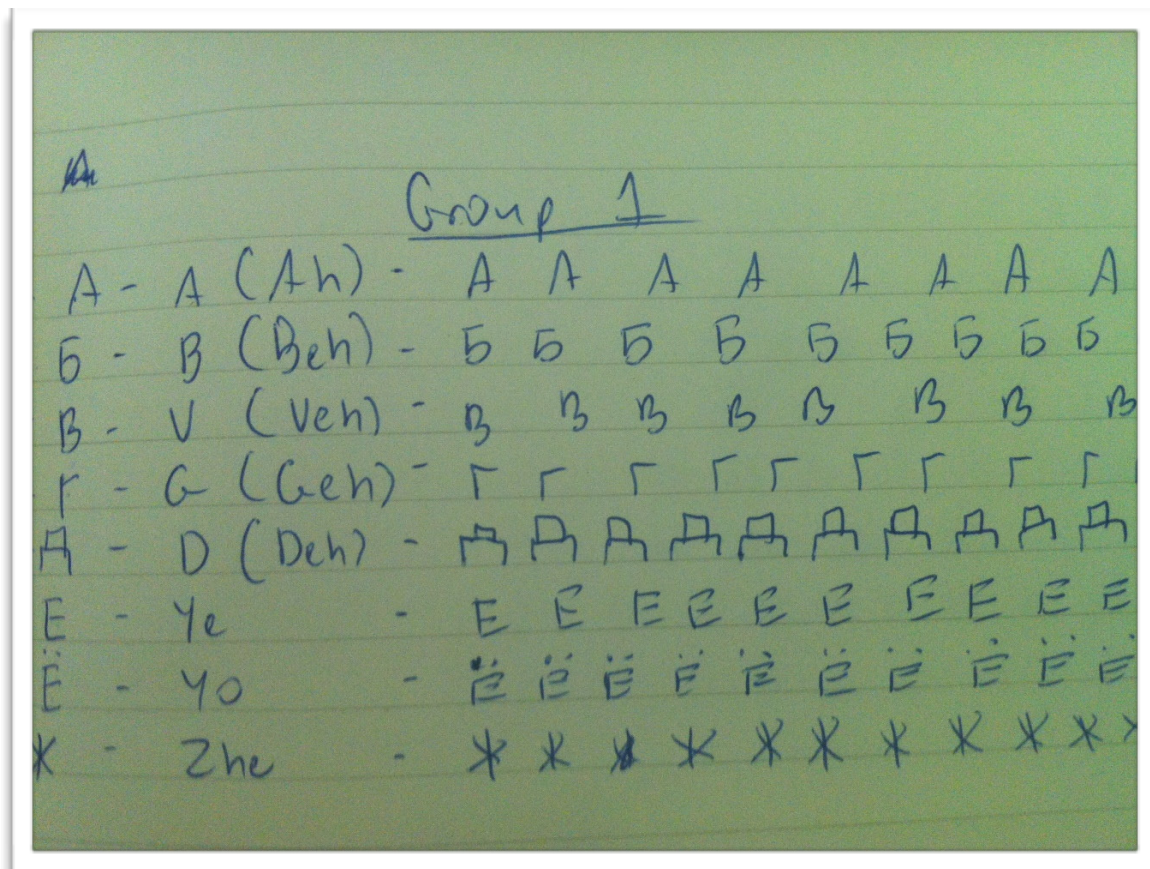 Group 1
А - A (Ah) - А А А А А А А А
Б - B (Beh) - Б Б Б Б Б Б Б Б Б
В - V (Veh) - В В В В В В В В
Г - G (Geh) - Г Г Г Г Г Г Г Г Г
Д - D (Deh) - Д Д Д Д Д Д Д Д Д Д
Е - Ye - Е Е Е Е Е Е Е Е Е Е
Ё - Yo - Ё Ё Ё Ё Ё Ё Ё Ё Ё Ё
Ж - Zhe - Ж Ж Ж Ж Ж Ж Ж Ж Ж Ж